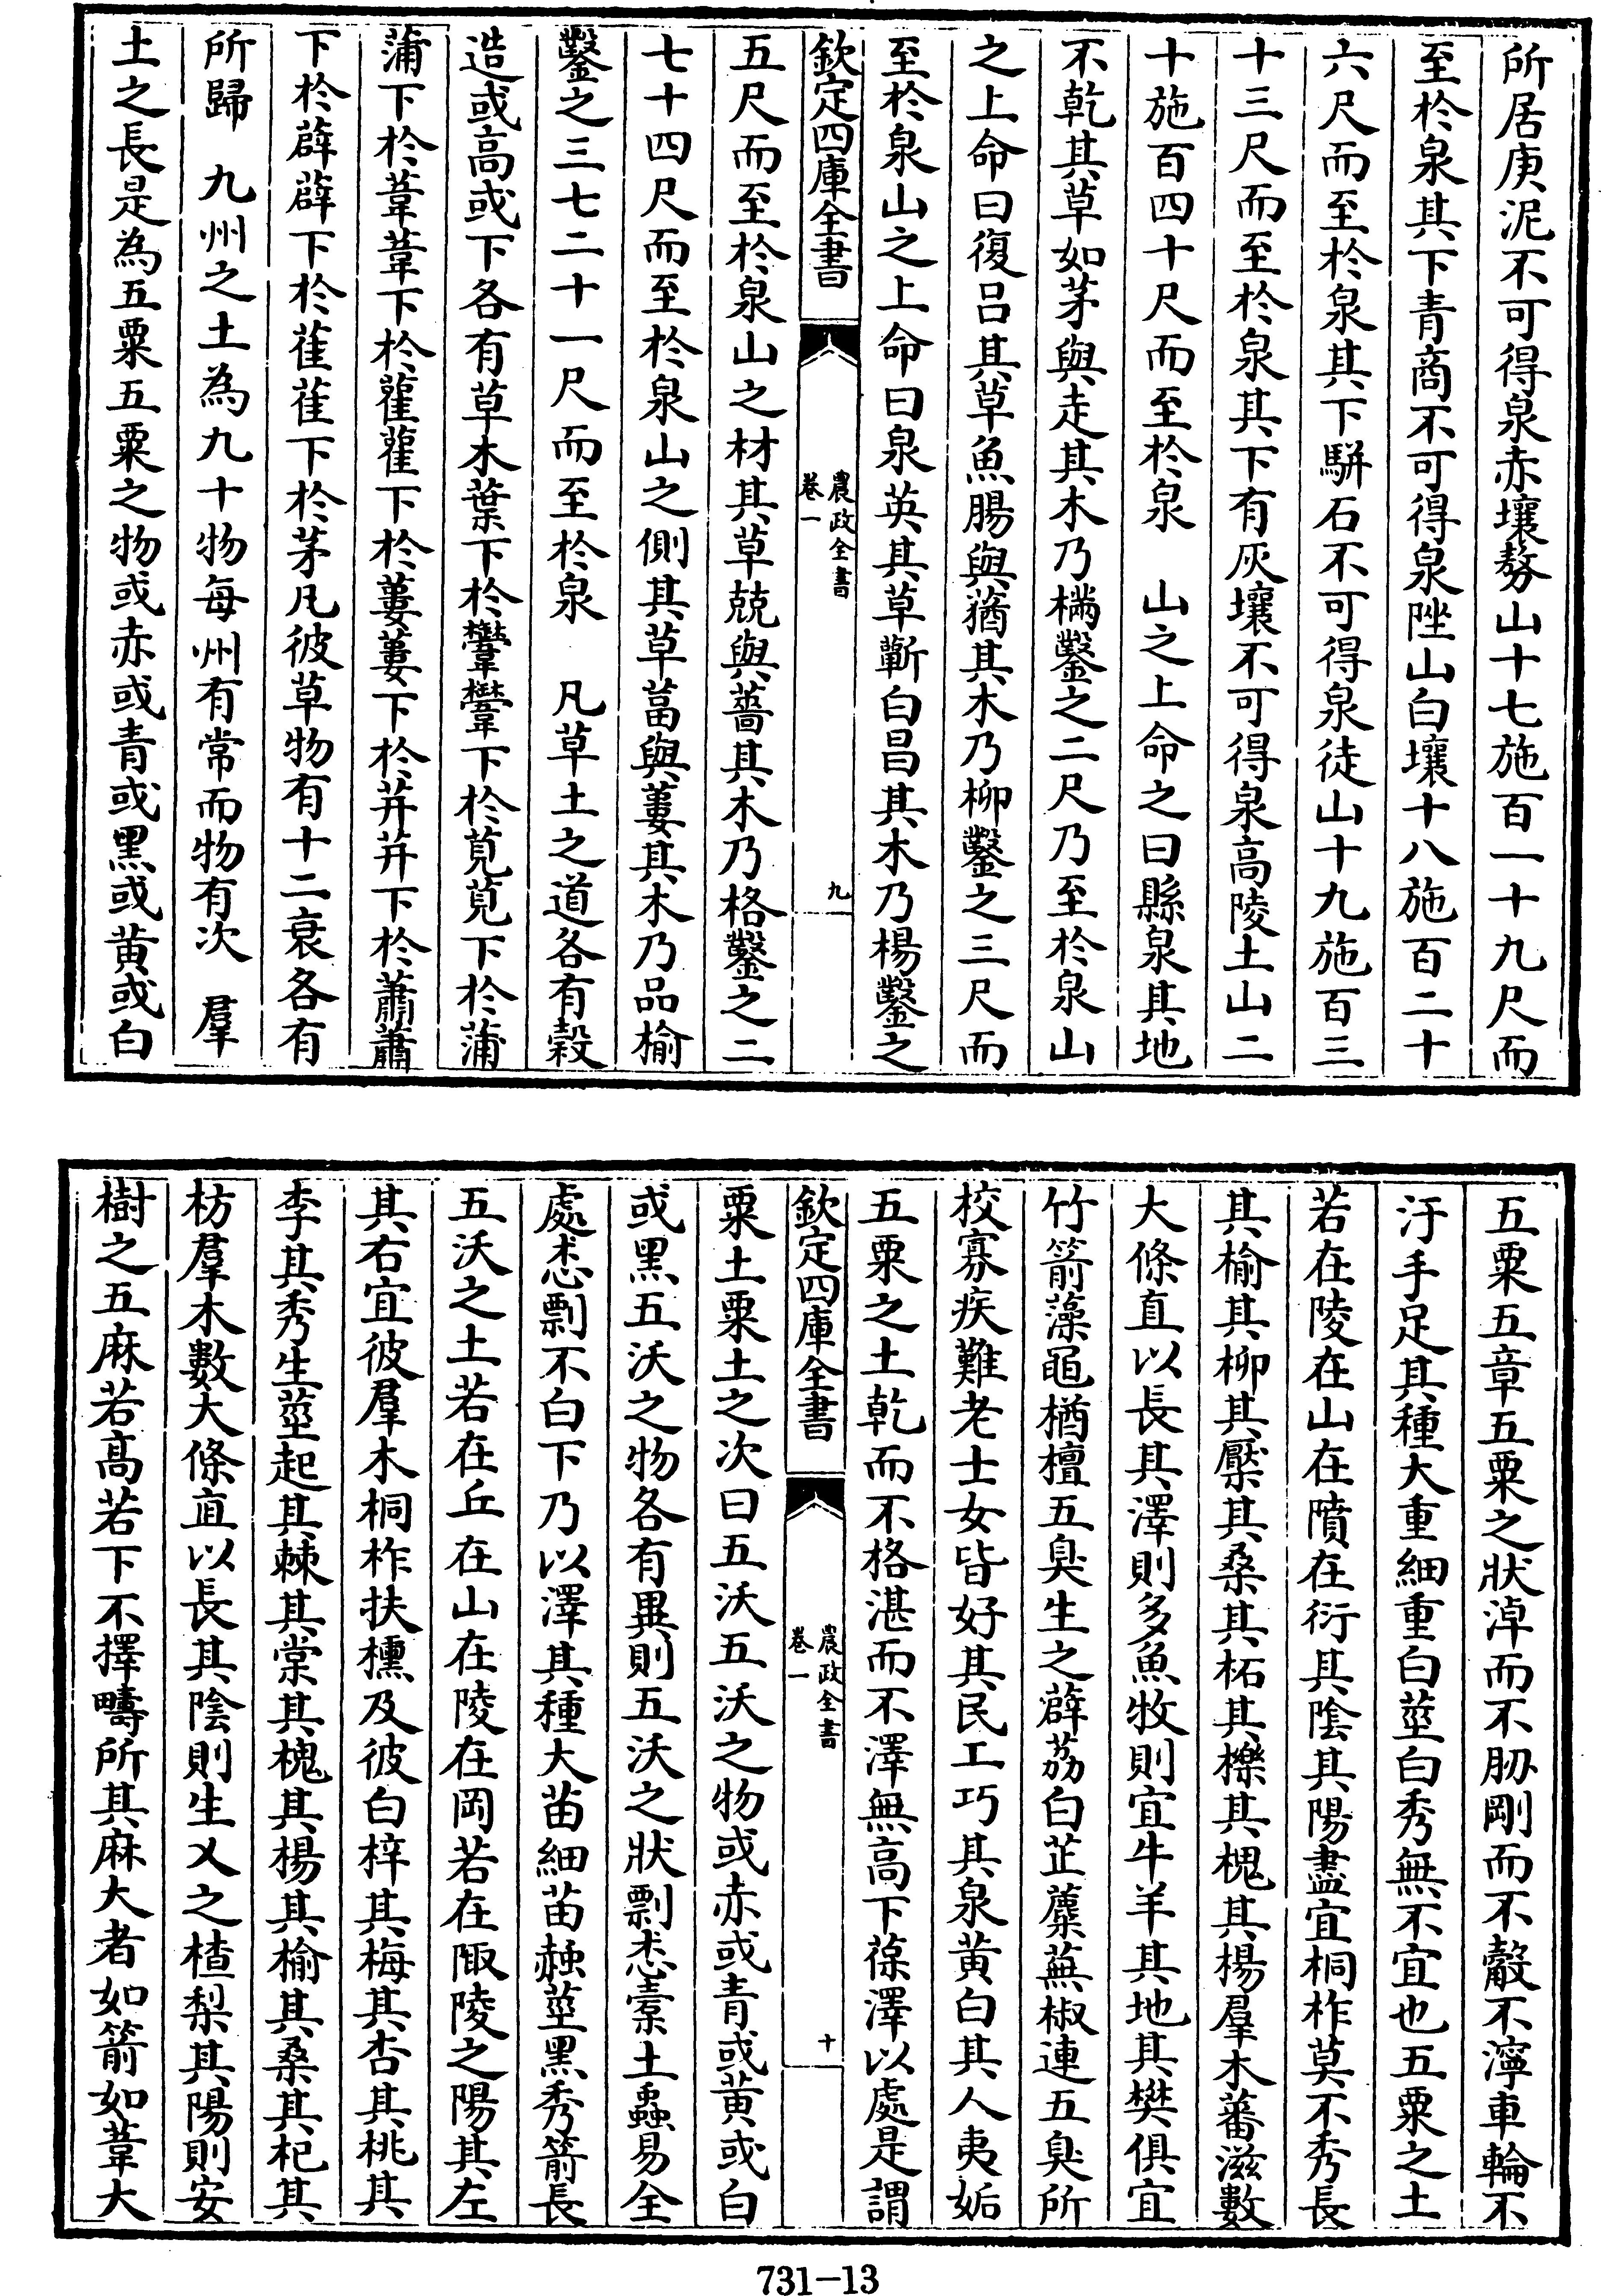 所居庚泥不可得泉赤壤勢山十七施百一十九尺而
至於泉其下青商不可得泉陛山白壤十八施百二十
六尺而至於泉其下駢石不可得泉徒山十九施百三
十三尺而至於泉其下有灰壤不可得泉高陵土山二
十施百四十尺而至於泉　山之上命之曰縣泉其地
不乾其草如茅與走其木乃樠鑿之二尺乃至於泉山
之上命曰復呂其草魚腸與蕕其木乃柳鑿之三尺而
至於泉山之上命曰泉英其草蘄白昌其木乃楊鑿之
欽定四庫全書
農政全書
卷一
九
五尺而至於泉山之材其草兢與薔其木乃格鑿之二
七十四尺而至於泉山之側其草葍與蔞其木乃品榆
鑿之三七二十一尺而至於泉　凡草土之道各有穀
造或高或下各有草木葉下於虆虆下於莧莧下於蒲
蒲下於葦葦下於雚雚下於蔞蔞下於荓荓下於蕭蕭
下於薜薜下於萑萑下於茅凡彼草物有十二衰各有
所歸　九州之土為九十物每州有常而物有次　羣
土之長是為五粟五粟之物或赤或青或黑或黄或白
五粟五章五粟之狀淖而不肕剛而不觳不濘車輪不
汙手足其種大重細重白莖白秀無不宜也五粟之土
若在陵在山在隫在衍其陰其陽盡宜桐柞莫不秀長
其榆其柳其檿其桑其柘其櫟其槐其楊羣木蕃滋數
大條直以長其澤則多魚牧則宜牛羊其地其樊俱宜
竹箭藻黽楢檀五臭生之薜荔白芷蘪蕪椒連五臭所
校寡疾難老士女皆好其民工巧其泉黄白其人夷姤
五粟之土乾而不格湛而不澤無高下葆澤以處是謂
欽定四庫全書
農政全書
卷一
十
粟土粟土之次曰五沃五沃之物或赤或青或黄或白
或黑五沃之物各有異則五沃之狀剽怸橐土蟲易全
處怸剽不白下乃以澤其種大苗細苗赨莖黑秀箭長
五沃之土若在丘在山在陵在岡若在陬陵之陽其左
其右宜彼羣木桐柞扶櫄及彼白梓其梅其杏其桃其
李其秀生莖起其棘其棠其槐其楊其榆其桑其杞其
枋羣木數大條直以長其陰則生㐅之楂梨其陽則安
樹之五麻若高若下不擇疇所其麻大者如箭如葦大
731-13